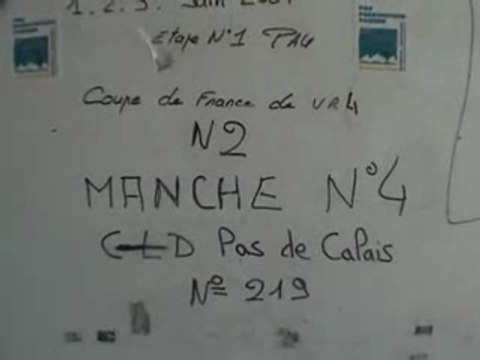 1.2.3. Juin 2001
Etape N°1 PAU
Coupe de France de VR4
N2
MANCHE N°4
CLD Pas de Calais
N° 219